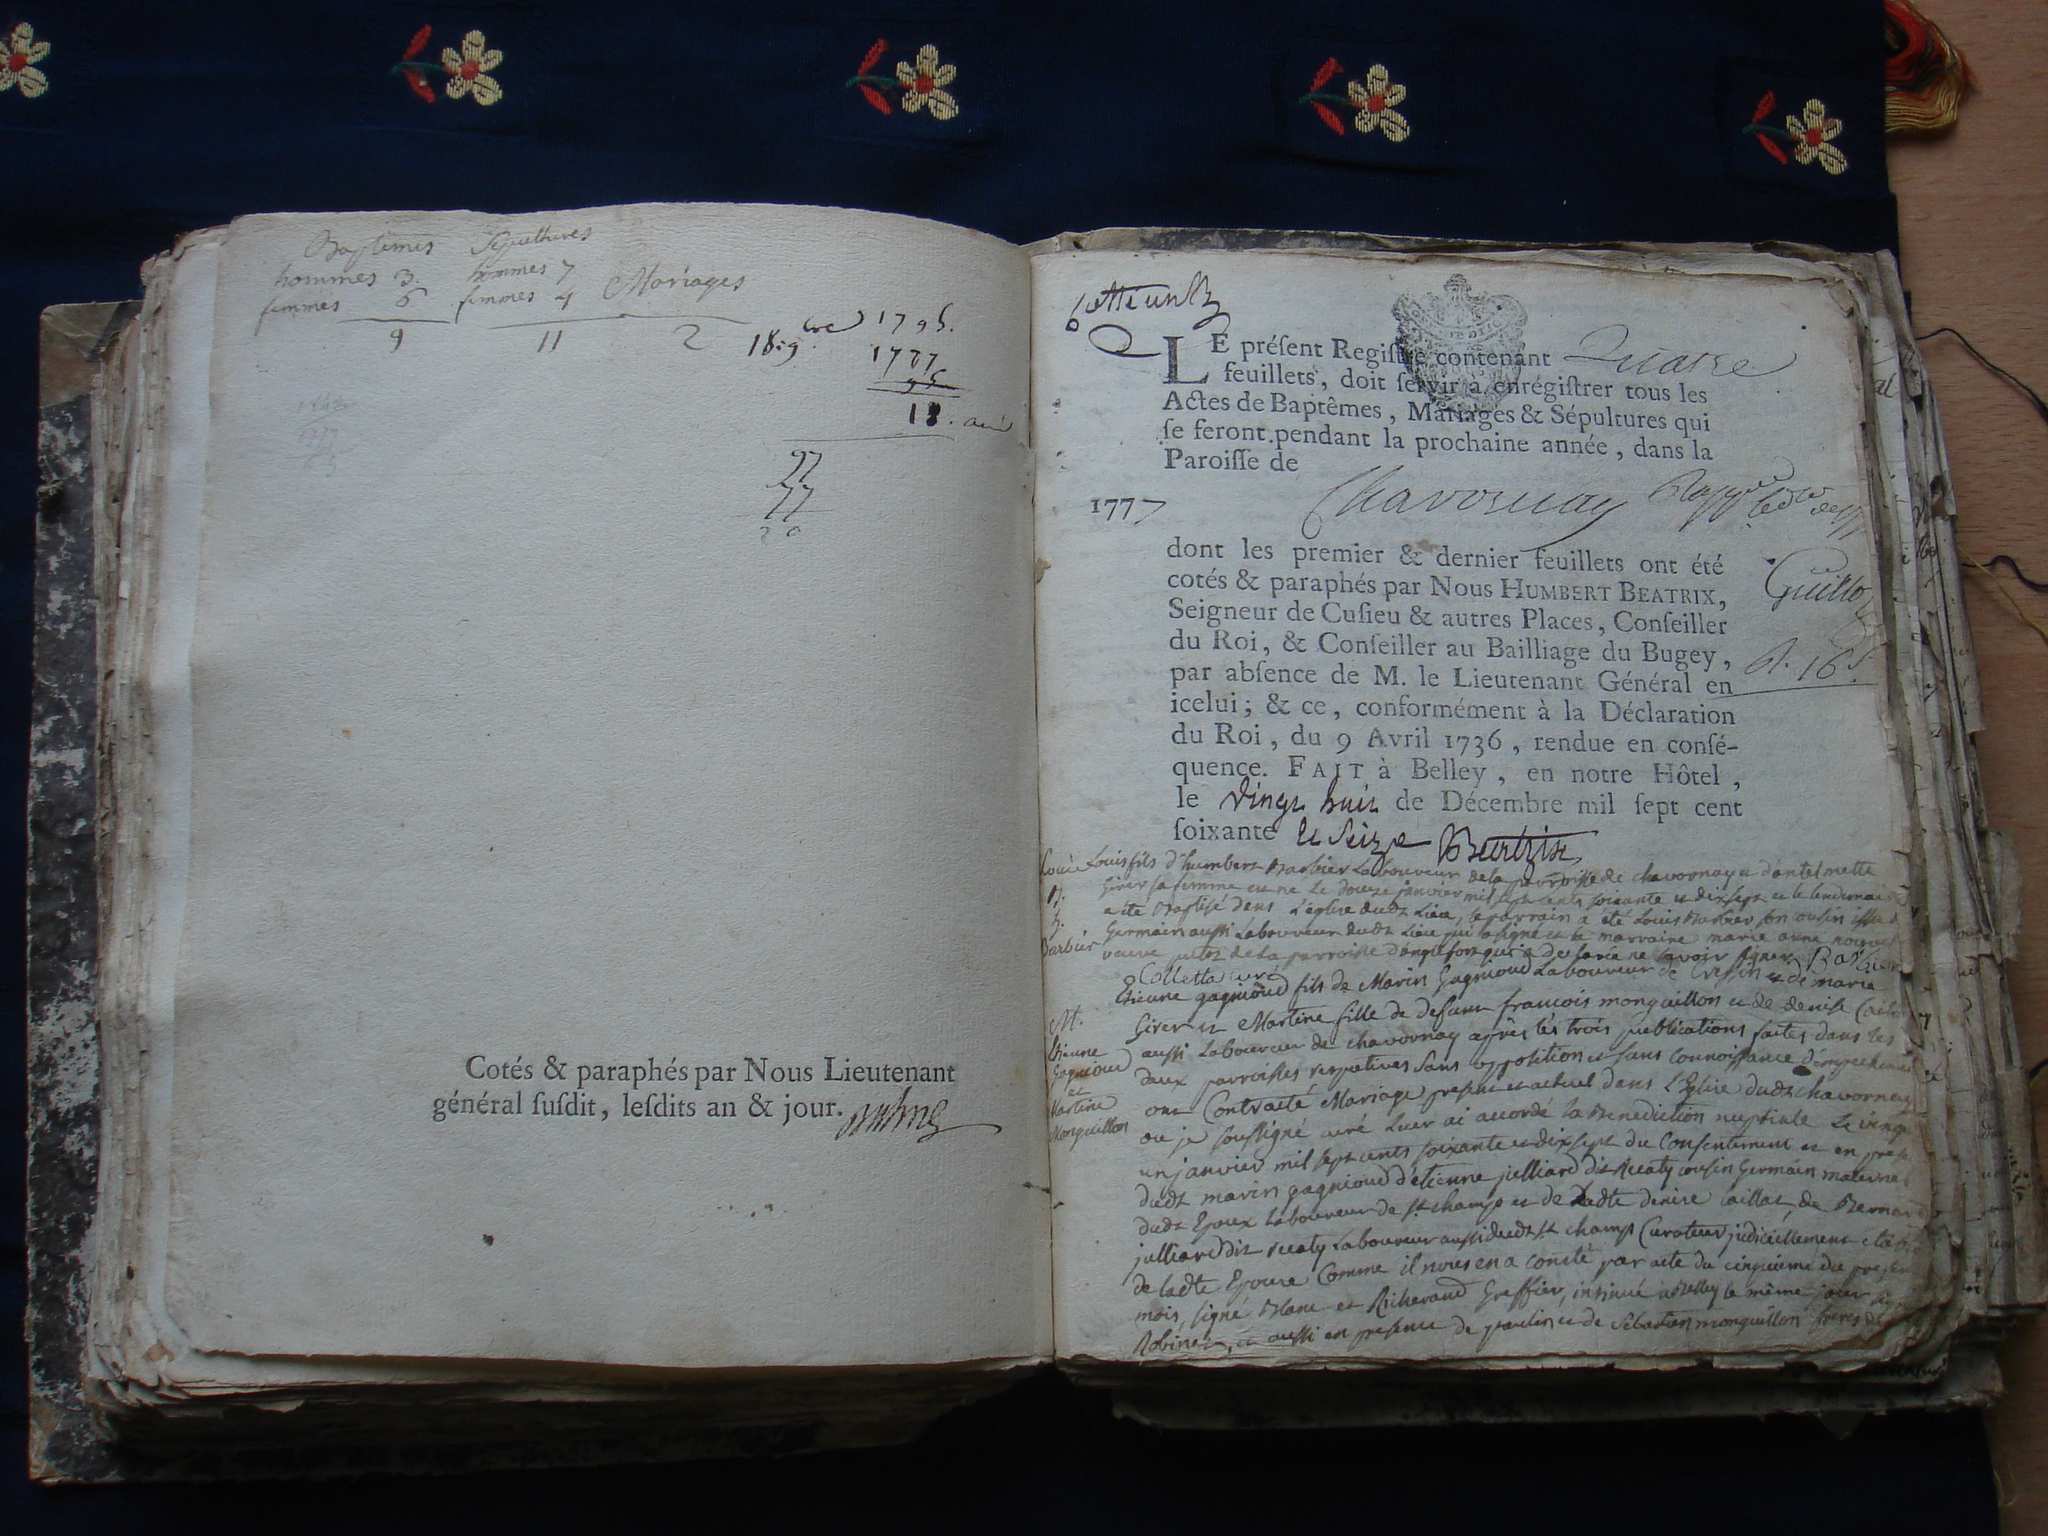 Baptêmes Sépultures
hommes 3. hommes 7 Mariages
femmes 6 femmes 4
9 11 2
1795.
1777
95
18.
97
77
20
Cotés & paraphés par Nous Lieutenant
général ſuſdit, leſdits an & jour.
LE préſent Regiſtre contenant Quatre
feuillets, doit ſervir à enrégiſtrer tous les
Actes de Baptêmes, Mariages & Sépultures qui
ſe feront pendant la prochaine année, dans la
Paroiſſe de
1777 Chavornay
dont les premier & dernier feuillets ont été
cotés & paraphés par Nous HUMBERT BEATRIX,
Seigneur de Cuſieu & autres Places, Conſeiller
du Roi, & Conſeiller au Bailliage du Bugey,
par abſence de M. le Lieutenant Général en
icelui; & ce, conformément à la Déclaration
du Roi, du 9 Avril 1736, rendue en conſé-
quence. FAIT à Belley, en notre Hôtel,
le vingt huit de Décembre mil ſept cent
ſoixante et seize Beatrix
Louis fils d'humbert Barbier Laboureur de la parroisse de chavornay et d'antelmette
Girer sa femme est né le douze janvier mil sept cents soixante et dix sept et le lendemain
a été Baptisé dans L'église dudt Lieu, le parrain a été Louis Barbier son cousin
Germain aussi Laboureur dudt Lieu qui a signé et la marraine marie anne
veuve de la parroisse d'anglefort qui a declaré ne savoir signer Barbier
Barbier
Colletta curé
Etienne gagnioud fils de Marin Gagnioud Laboureur de Cressin et de marie
M.
Girer et Martine fille de defunt francois monguillon et de denise
Etienne
Gagnioud
et
Martine
Monguillon
aussi Laboureur de chavornay après les trois publications faites dans les
deux parroisses respectives sans opposition et sans connoissance d'empechement
ont Contracté Mariage present et actuel dans L'Eglise dudt chavornay
ou je soussigné curé Leur ai accordé la Benediction nuptiale Le vingt
un janvier mil sept cents soixante et dix sept du Consentement et en
dudt marin gagnioud d'étienne julliard dit Recaty cousin Germain maternel
dudt Epoux Laboureur de st champ et de Ladte denise caillat, de Bernard
julliard dit Recaty Laboureur aussi dudt st champ Curateur judiciellement
de ladte Epouse Comme il nous en a consté par acte du cinquieme du present
mois, signé Blanc et Richerand Greffier, insinué a Belley le même jour
Robinet, et aussi en presence de et de Sébastien monguillon freres de